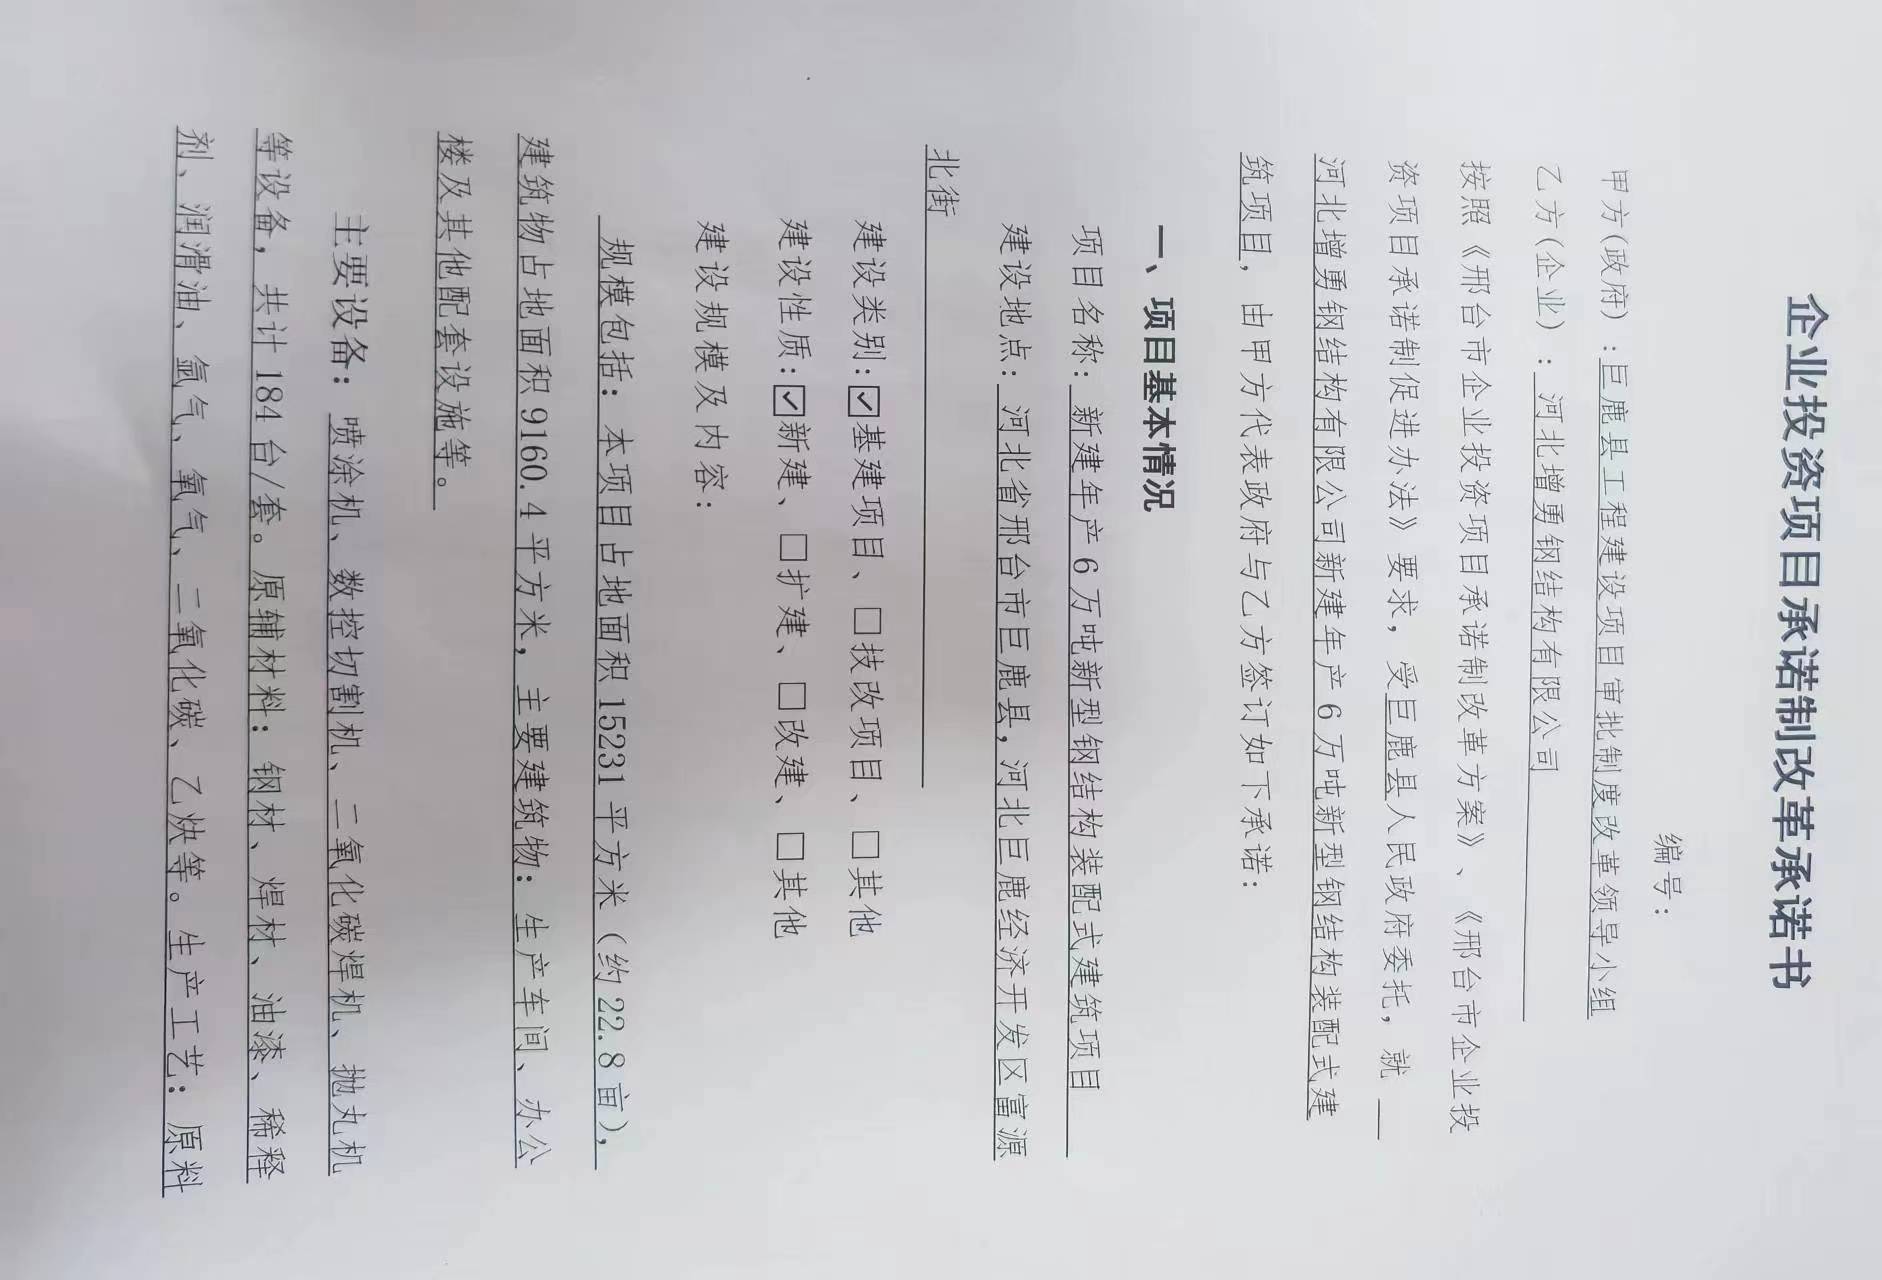 企业投资项目承诺制改革承诺书
编号：
甲方(政府)：巨鹿县工程建设项目审批制度改革领导小组
乙方(企业)：河北增勇钢结构有限公司
按照《邢台市企业投资项目承诺制改革方案》、《邢台市企业投
资项目承诺制促进办法》要求，受巨鹿县人民政府委托，就
河北增勇钢结构有限公司新建年产6万吨新型钢结构装配式建
筑项目，由甲方代表政府与乙方签订如下承诺：
一、项目基本情况
项目名称：新建年产6万吨新型钢结构装配式建筑项目
建设地点：河北省邢台市巨鹿县，河北巨鹿经济开发区富源
北街
建设类别：☑基建项目、□技改项目、□其他
建设性质：☑新建、□扩建、□改建、□其他
建设规模及内容：
规模包括：本项目占地面积15231平方米（约22.8亩），
建筑物占地面积9160.4平方米，主要建筑物：生产车间、办公
楼及其他配套设施等。
主要设备：喷涂机、数控切割机、二氧化碳焊机、抛丸机
等设备，共计184台/套。原辅材料：钢材、焊材、油漆、稀释
剂、润滑油、氩气、氧气、二氧化碳、乙炔等。生产工艺：原料